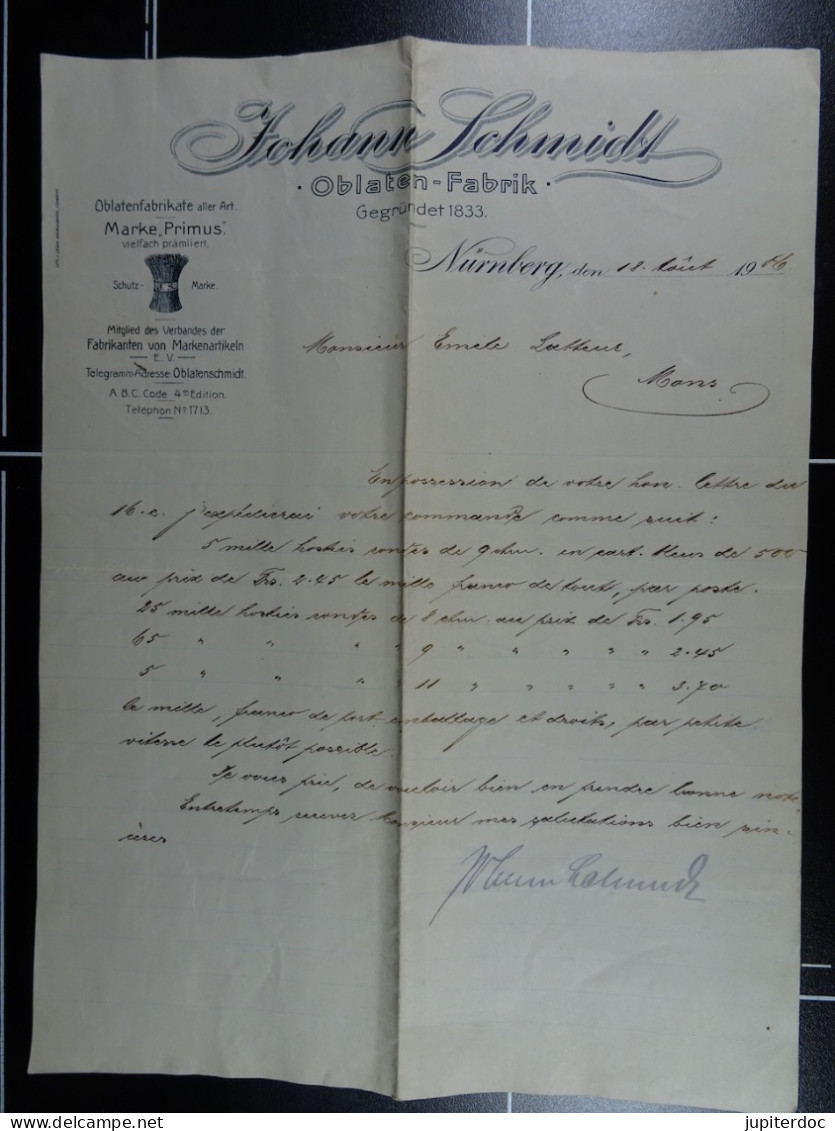 Johann Schmidt
· Oblaten-Fabrik ·
Gegründet 1833.
Oblatenfabrikate aller Art.
Marke „Primus“.
vielfach prämiiert.
Schutz- Marke.
Mitglied des Verbandes der
Fabrikanten von Markenartikeln
— E. V. —
Telegramm-Adresse: Oblatenschmidt.
A.B.C. Code 4th Edition.
Telephon No 1713.
Nürnberg, den 18. Août 1906.
Monsieur Emile Latteur,
Mons
En possession de votre hon. lettre du
16. c. j'expédierai votre commande comme suit:
5 mille hosties rondes de 9 ctm. en cart. bleus de 500
au prix de Frs. 2.45 le mille franco de tout, par poste.
25 mille hosties rondes de 8 ctm. au prix de Frs. 1.95
65 " " " " 9 " " " " " 2.45
5 " " " " 11 " " " " " 3.70
le mille, franco de port emballage et droits, par petite
vitesse le plutôt possible.
Je vous prie, de vouloir bien en prendre bonne note
Entretemps recevez Monsieur mes salutations bien sin-
cères
Johann Schmidt
jupiterdoc